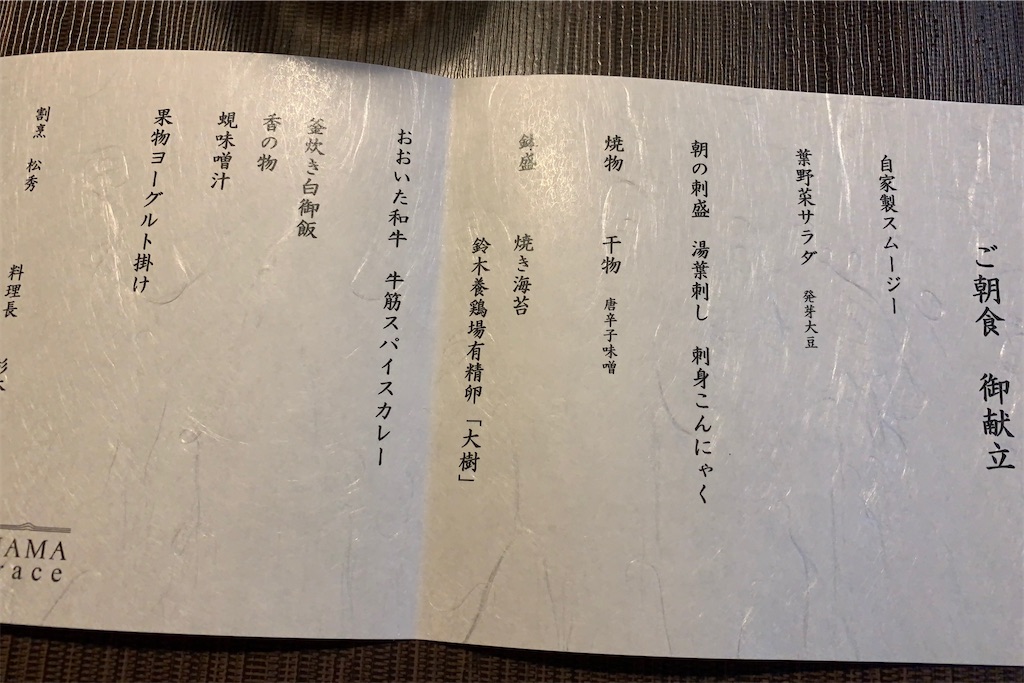 ご朝食　御献立
自家製スムージー
葉野菜サラダ　発芽大豆
朝の刺盛　湯葉刺し　刺身こんにゃく
焼物　干物　唐辛子味噌
鉢盛　焼き海苔
鈴木養鶏場有精卵「大樹」
おおいた和牛　牛筋スパイスカレー
釜炊き白御飯
香の物
蜆味噌汁
果物ヨーグルト掛け
割烹　松秀
料理長
AMA
race